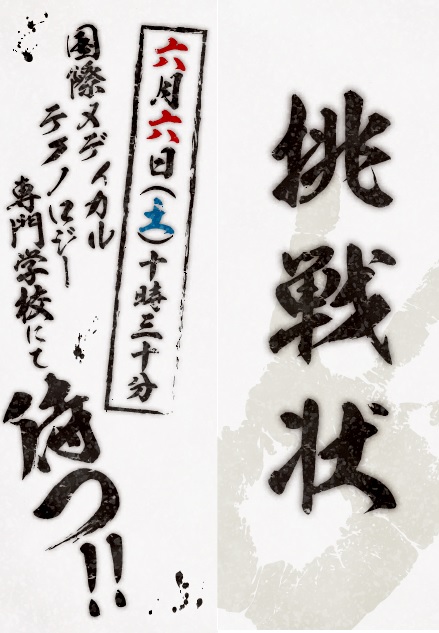 挑戦状
六月六日(土)十時三十分
国際メディカル
テクノロジー
専門学校にて
待つ!!